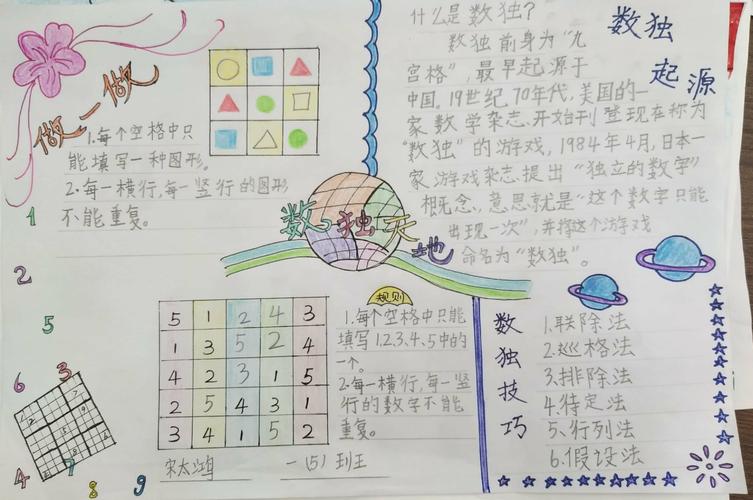 做一做
1.每个空格中只
能填写一种图形。
2.每一横行,每一竖行的图形
不能重复。
什么是数独?
数独前身为“九
宫格”,最早起源于
中国。19世纪70年代,美国的一
家数学杂志开始刊登现在称为
“数独”的游戏,1984年4月,日本一
家游戏杂志提出“独立的数字”
相概念,意思就是“这个数字只能
出现一次”,并将这个游戏
命名为“数独”。
数独
起源
数独天地
1
2
5
6
3
4
7
8
9
5 1 2 4 3
1 3 5 2 4
4 2 3 1 5
2 5 4 3 1
3 4 1 5 2
宋太鸿 一(5)班王
规则
1.每个空格中只能
填写1.2.3.4.5中的
一个。
2.每一横行,每一竖
行的数字不能
重复。
数独技巧
1.联除法
2.巡格法
3.排除法
4.待定法
5.行列法
6.假设法